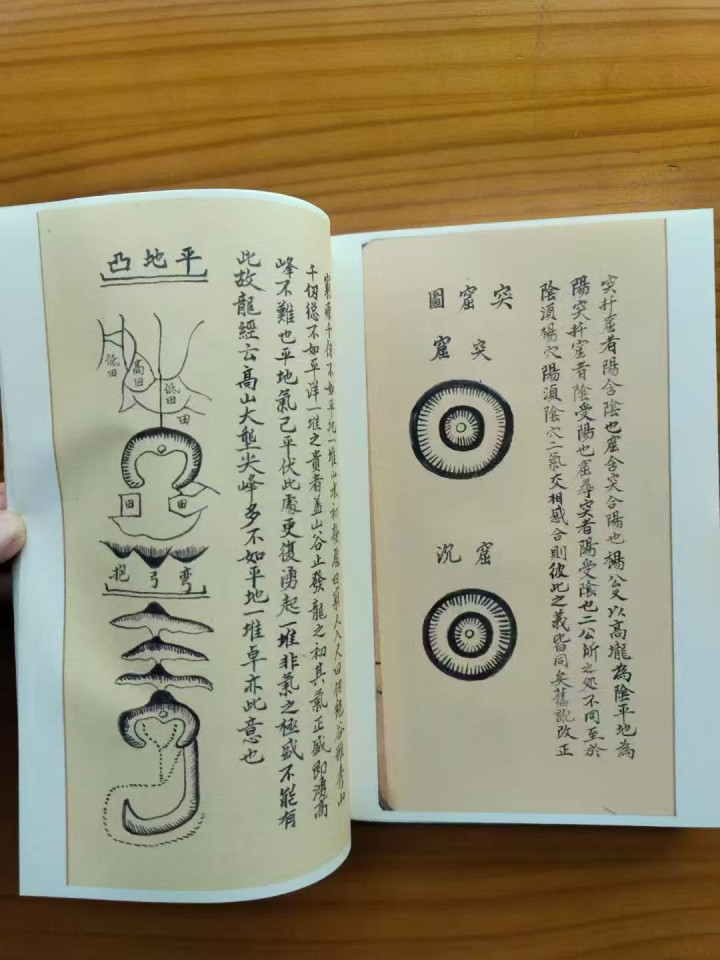 突扦窟者陽含陰也窟含突合陽也楊公又以高壠為陰平地為
陽突扦窟者陰受陽也窟尋突者陽受陰也二公所之処不同至於
陰湏楊穴陽湏陰穴二氣交相感合則彼此之義皆同矣舊訛改正
突窟圖
突窟
窟沉
千仞不如平地一堆山水初發
千仞總不如平洋一堆之貴者盖山谷止發龍之初其氣正盛即湧高
峰不難也平地氣已平伏此處更復湧起一堆非氣之極盛不能有
此故龍經云高山大壟尖峰多不如平地一堆卓亦此意也
平地凸
低田
高田
低田
田
田
田
彎弓抱